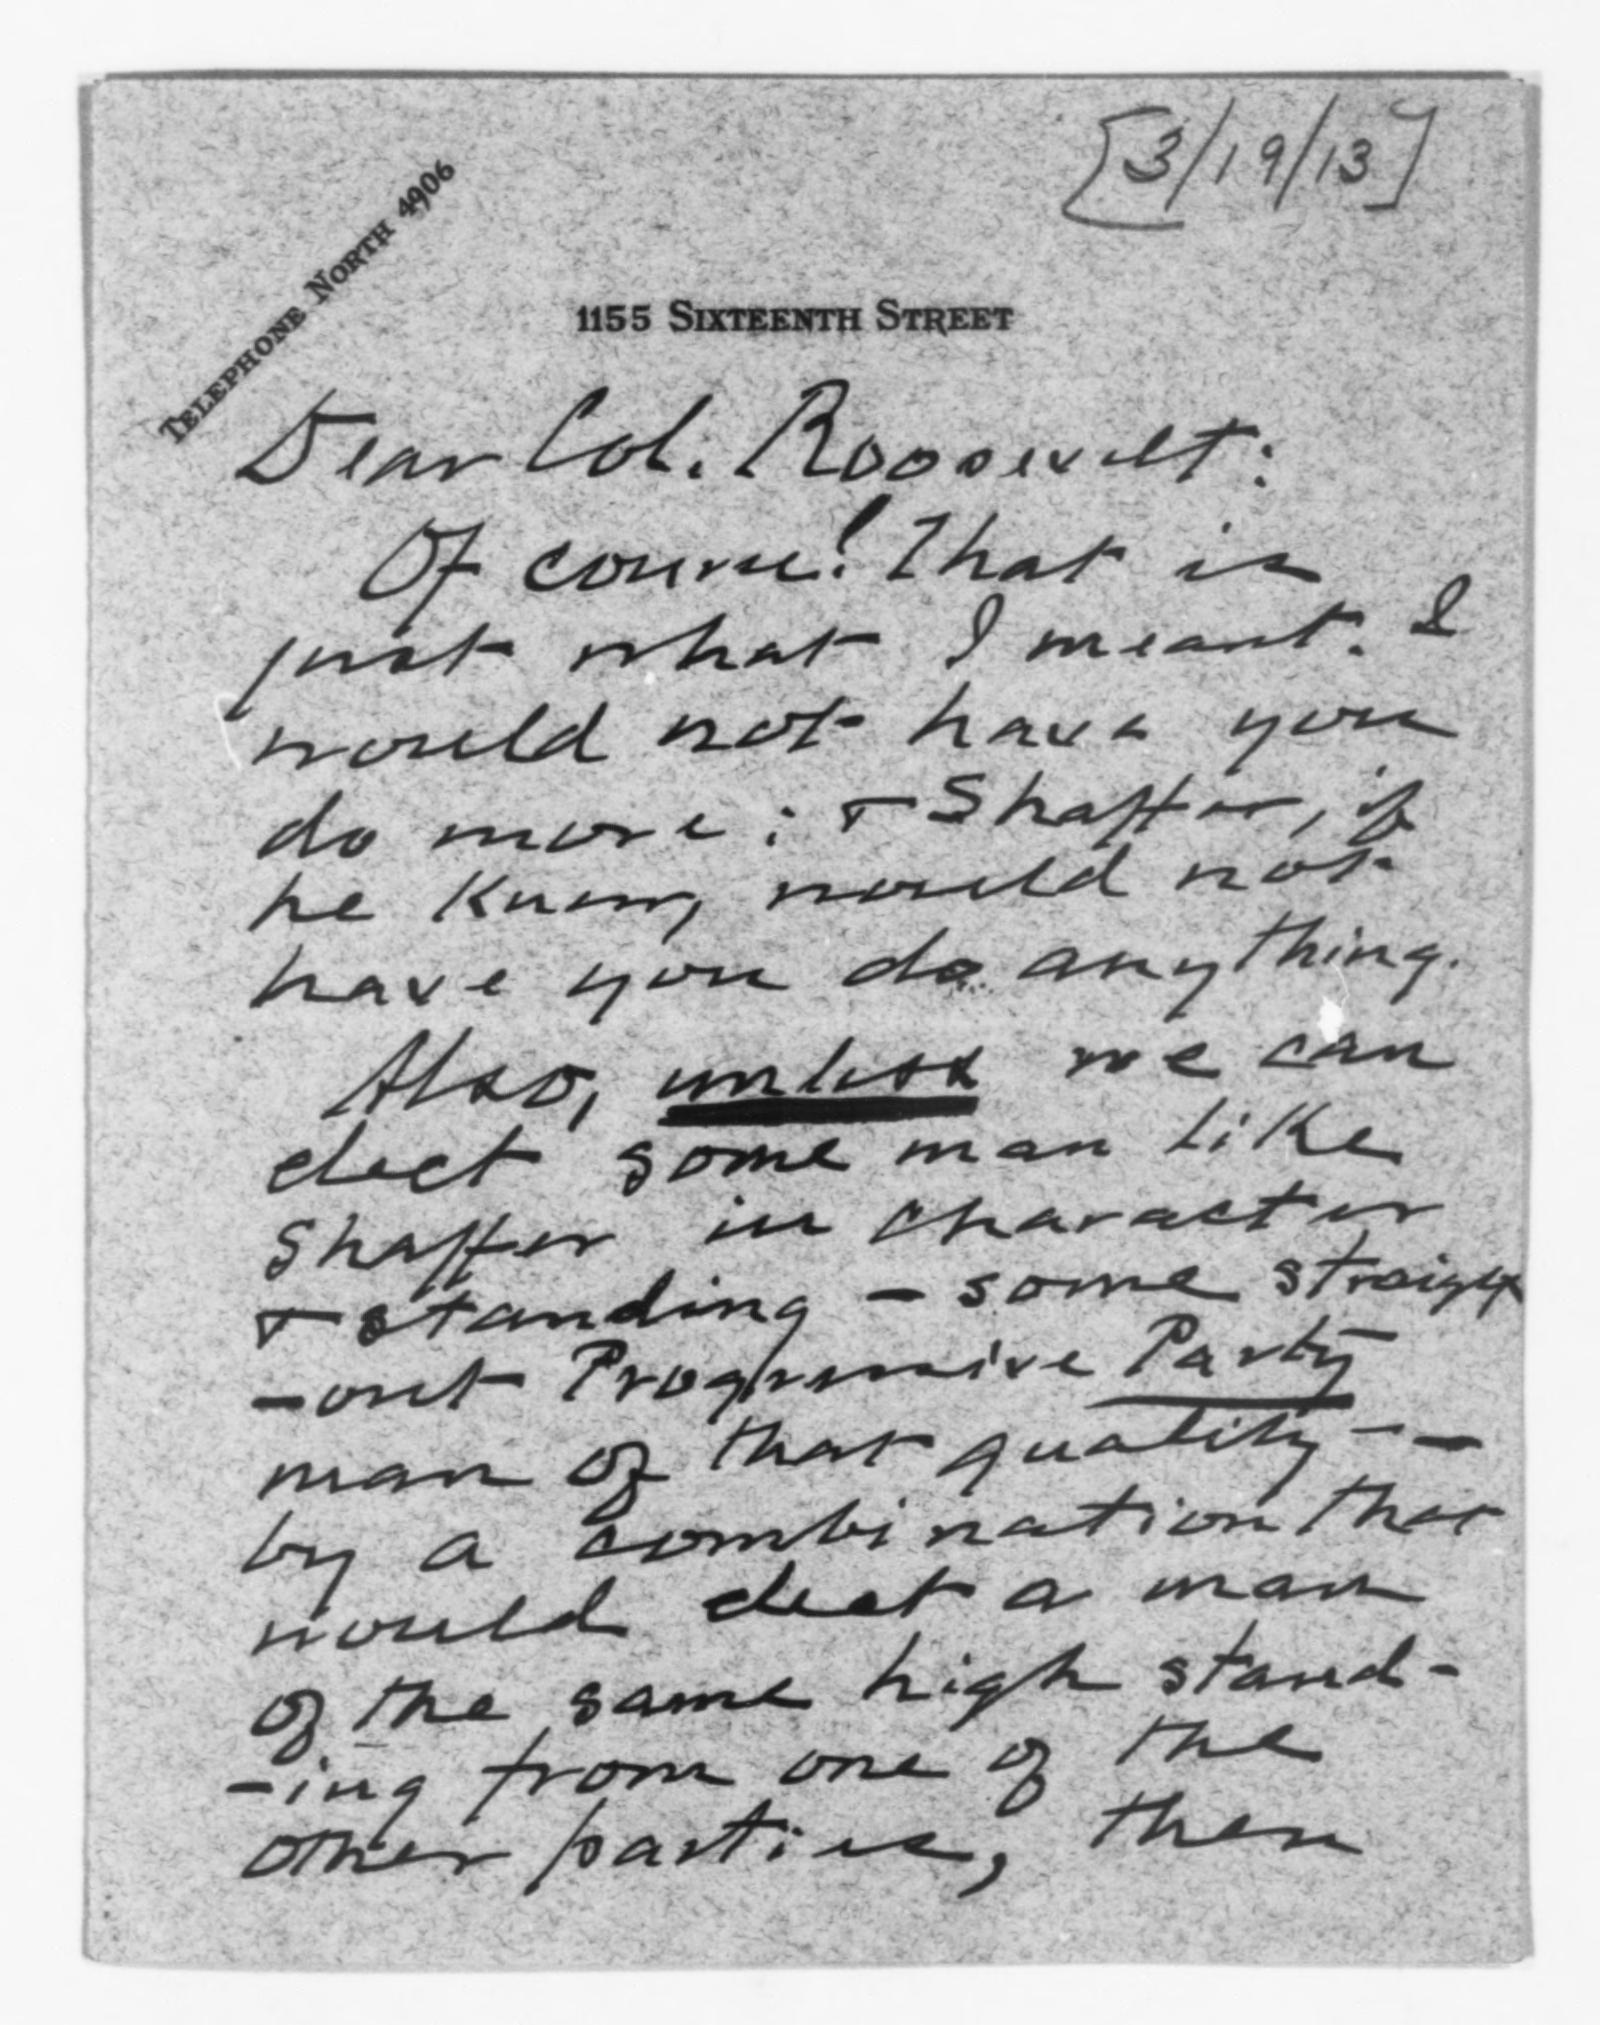 [3/19/13]
TELEPHONE NORTH 4906
1155 SIXTEENTH STREET
Dear Col. Roosevelt:
Of course! That is
just what I meant. I
would not have you
do more; & Shaffer, if
he knew, would not
have you do anything.
Also, unless we can
elect some man like
Shaffer in character
& standing - some straight
-out Progressive Party
man of that quality --
by a combination that
would elect a man
of the same high stand-
-ing from one of the
other parties, then